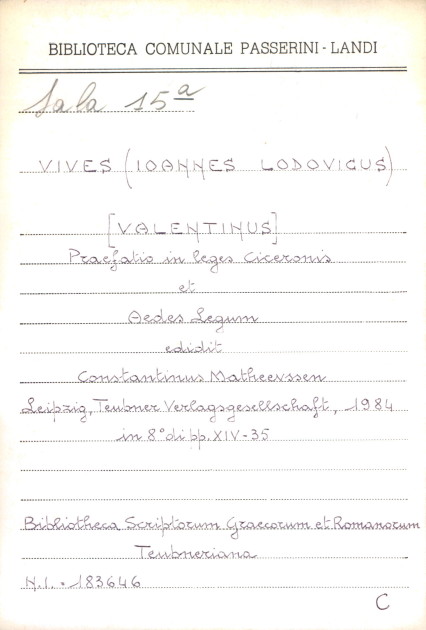 BIBLIOTECA COMUNALE PASSERINI - LANDI
Sala 15ª
VIVES (IOANNES LODOVICUS)
[VALENTINUS]
Praefatio in leges Ciceronis
et
Aedes Legum
edidit
Constantinus Matheevssen
Leipzig, Teubner Verlagsgesellschaft, 1984
in 8° di pp. XIV-35
Bibliotheca Scriptorum Graecorum et Romanorum
Teubneriana
N.I. • 183646
C